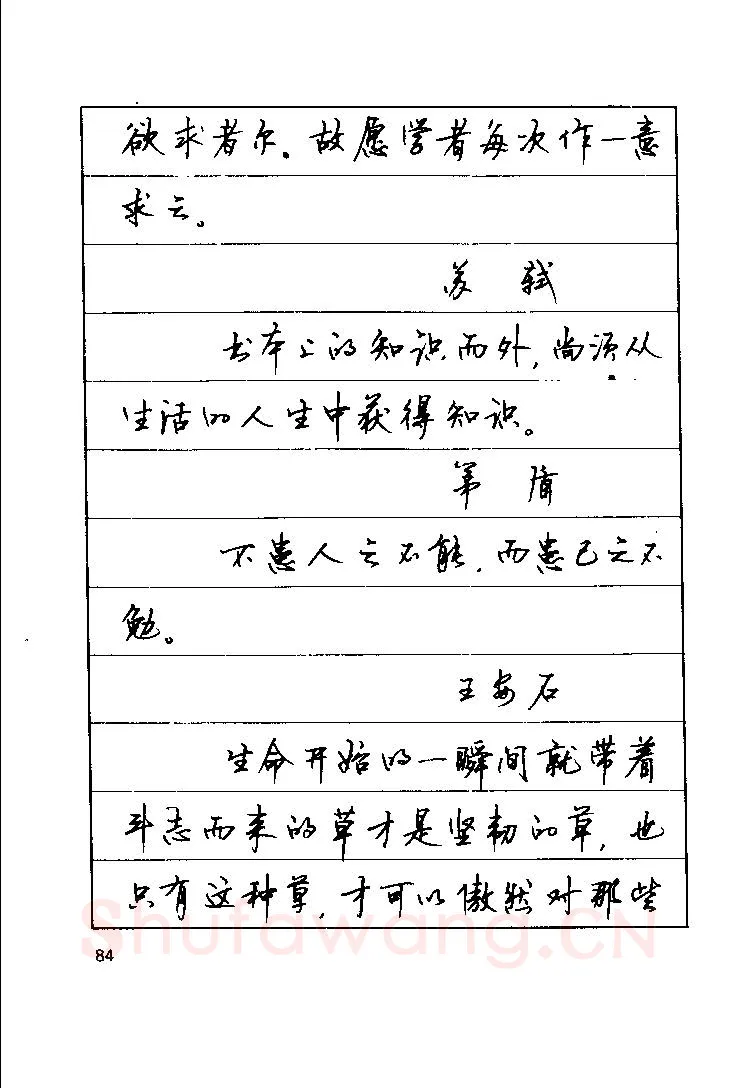 欲求者尔。故愿学者每次作一意
求之。
苏 轼
书本上的知识而外，尚须从
生活的人生中获得知识。
茅 盾
不患人之不能，而患己之不
勉。
王安石
生命开始的一瞬间就带着
斗志而来的草才是坚韧的草，也
只有这种草，才可以傲然对那些
84
Shufawang.CN